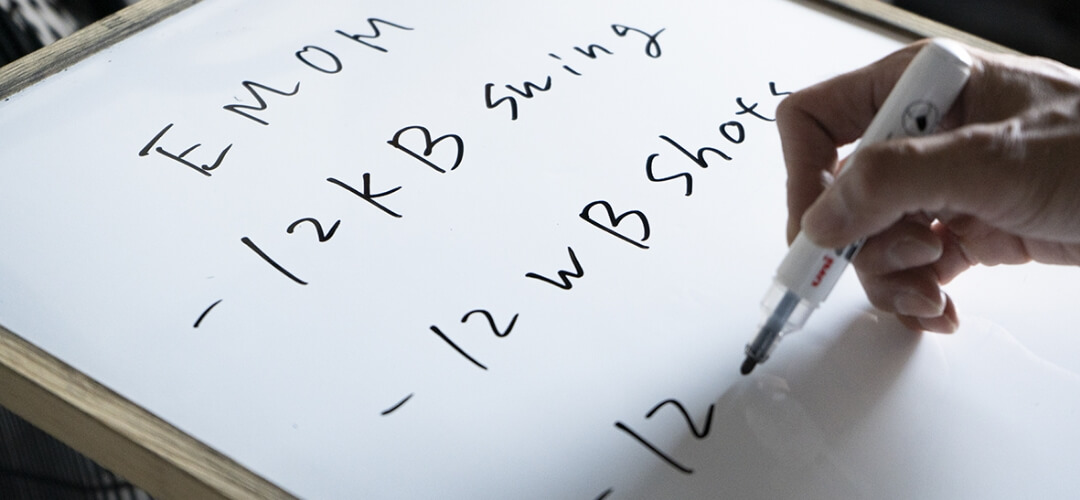 EMOM
- 12 KB Swing
- 12 WB Shots
- 12
uni